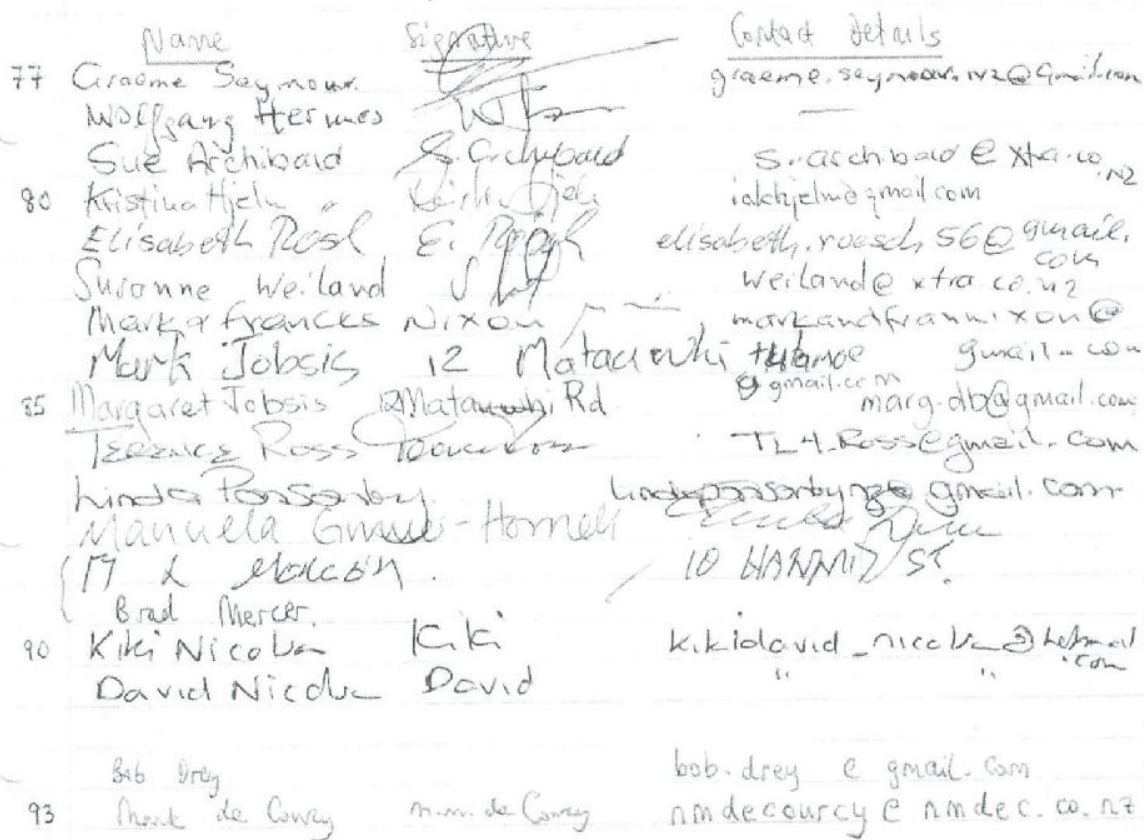 Name Signature Contact Details
77 Graeme Seymour. graeme.seymour.nz@gmail.com
Wolfgang Hermes —
Sue Archibald S. Archibald s.archibald@xtra.co.nz
80 Kristina Hjelm iakhjelm@gmail.com
Elisabeth Rösl E. elisabeth.roesch56@gmail.com
Susanne Weiland weiland@xtra.co.nz
Mark & Frances Nixon markandfrannixon@gmail.com
Mark Jobsis 12 Matauwhi
@gmail.com
85 Margaret Jobsis 12 Matauwhi Rd marg.db@gmail.com
Terence Ross TL4.Ross@gmail.com
Linda Ponsonby. lindaponsonbynz@gmail.com
Manuella
M & 10 St.
Brad Mercer.
90 Kiki Nicolva Kiki kikidavid_nicolva@hotmail.com
David Nicolva David " "
Bob Drey bob.drey@gmail.com
93 Mark de Courcy m.m. de Courcy nmdecourcy@nmdec.co.nz